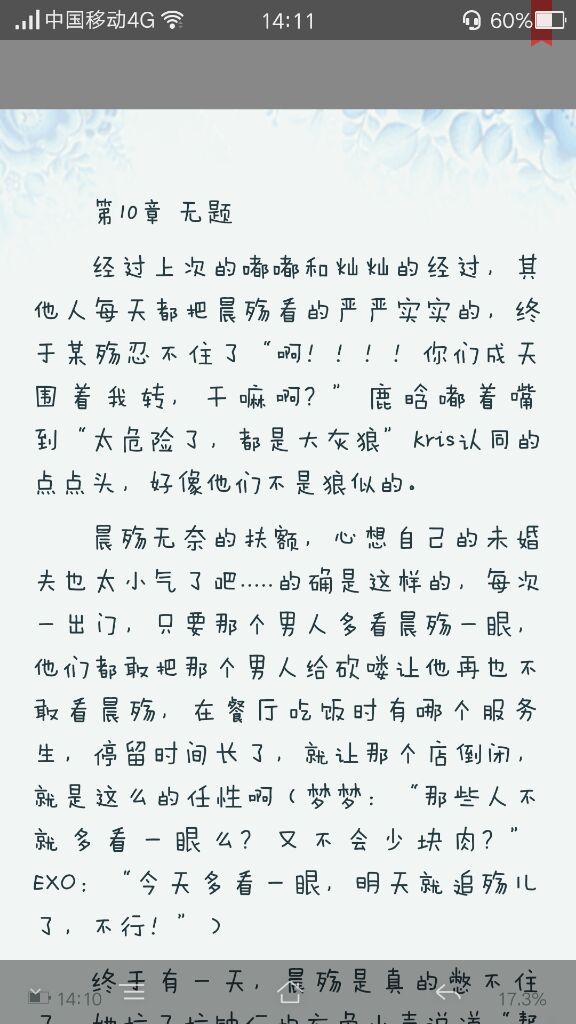 中国移动4G 14:11 60%
第10章 无题
经过上次的嘟嘟和灿灿的经过，其
他人每天都把晨殇看的严严实实的，终
于某殇忍不住了“啊！！！！你们成天
围着我转，干嘛啊？”鹿晗嘟着嘴
到“太危险了，都是大灰狼”kris认同的
点点头，好像他们不是狼似的。
晨殇无奈的扶额，心想自己的未婚
夫也太小气了吧.....的确是这样的，每次
一出门，只要那个男人多看晨殇一眼，
他们都敢把那个男人给砍喽让他再也不
敢看晨殇，在餐厅吃饭时有哪个服务
生，停留时间长了，就让那个店倒闭，
就是这么的任性啊（梦梦：“那些人不
就多看一眼么？又不会少块肉？”
EXO：“今天多看一眼，明天就追殇儿
了，不行！”）
终于有一天，晨殇是真的憋不住
14:10 17.3%